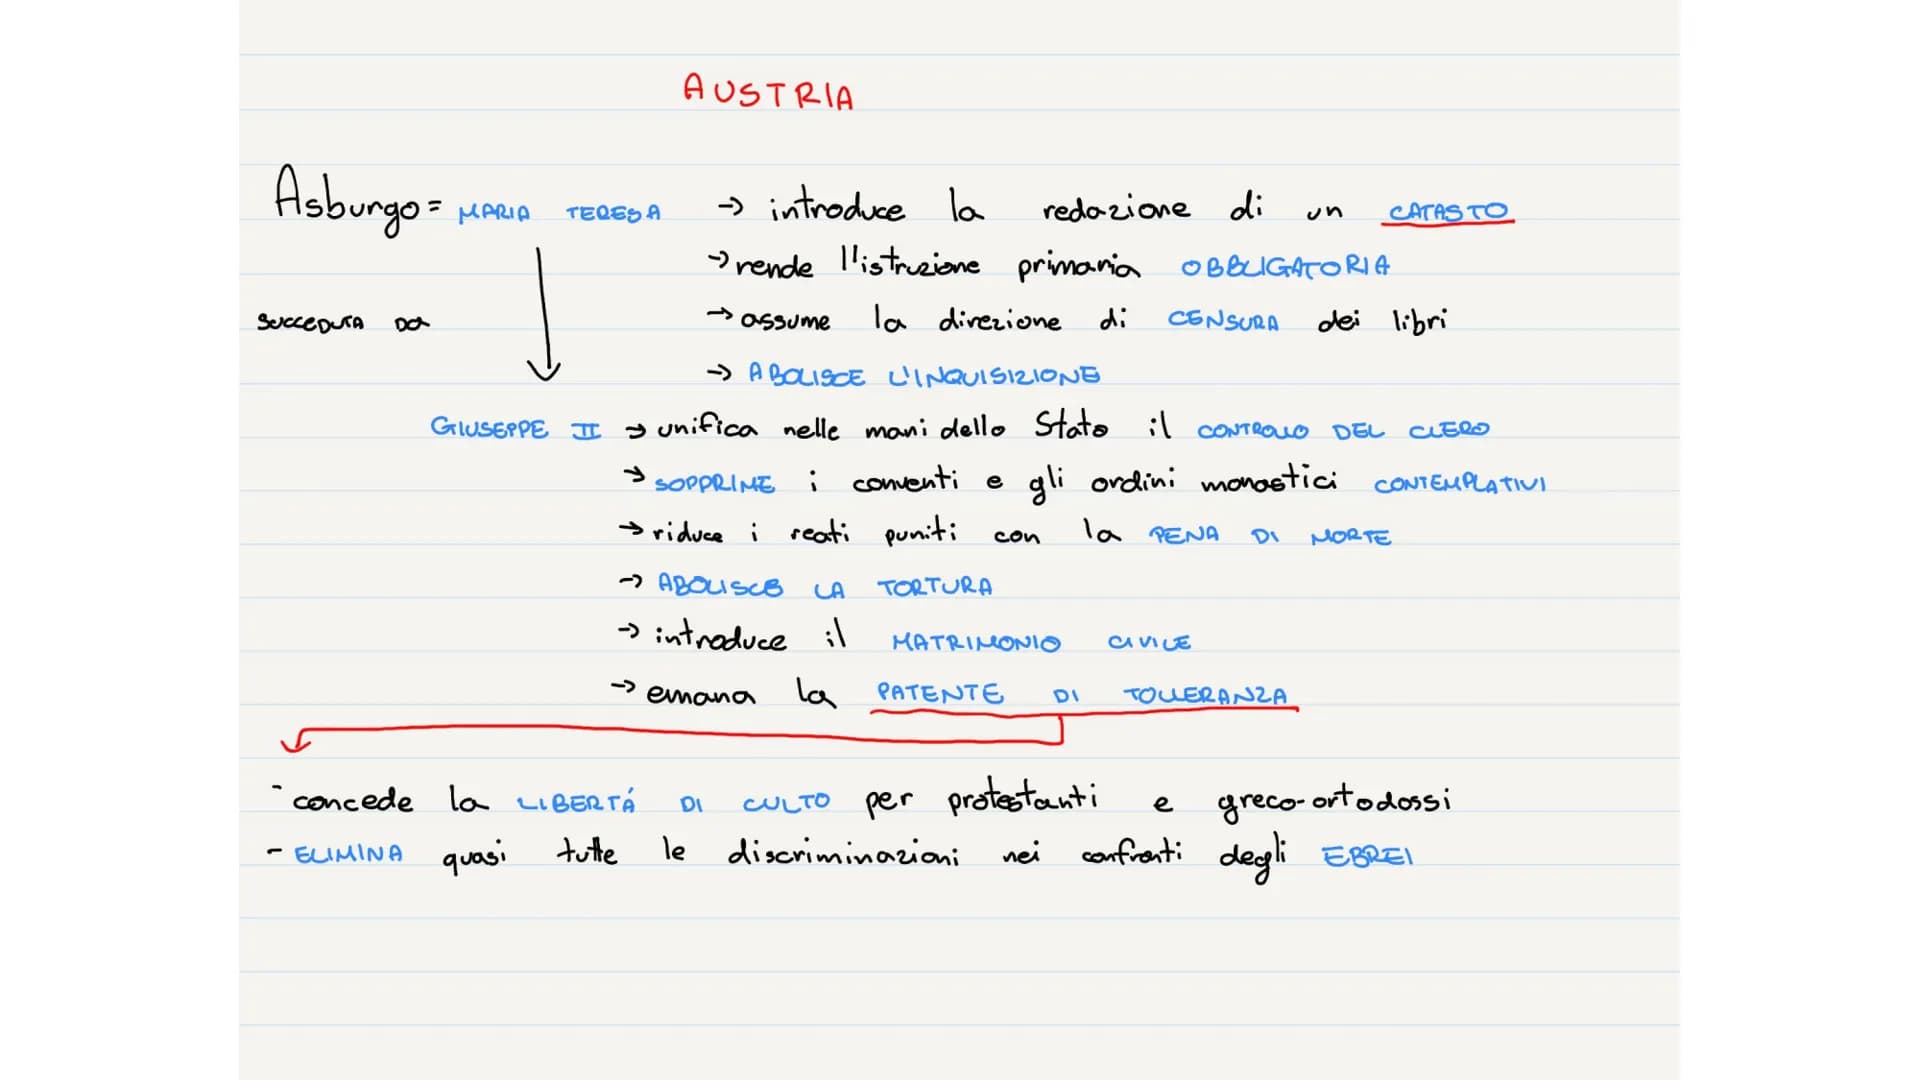 AUSTRIA
Asburgo = MARIA TERESA → introduce la redazione di un CATASTO
→ rende l'istruzione primaria OBBLIGATORIA
SUCCEDUTA DA → assume la direzione di CENSURA dei libri
→ ABOLISCE L'INQUISIZIONE
GIUSEPPE II → unifica nelle mani dello Stato il CONTROLLO DEL CLERO
→ SOPPRIME i conventi e gli ordini monastici CONTEMPLATIVI
→ riduce i reati puniti con la PENA DI MORTE
→ ABOLISCE LA TORTURA
→ introduce il MATRIMONIO CIVILE
→ emana la PATENTE DI TOLLERANZA
- concede la LIBERTÁ DI CULTO per protestanti e greco-ortodossi
- ELIMINA quasi tutte le discriminazioni nei confronti degli EBREI